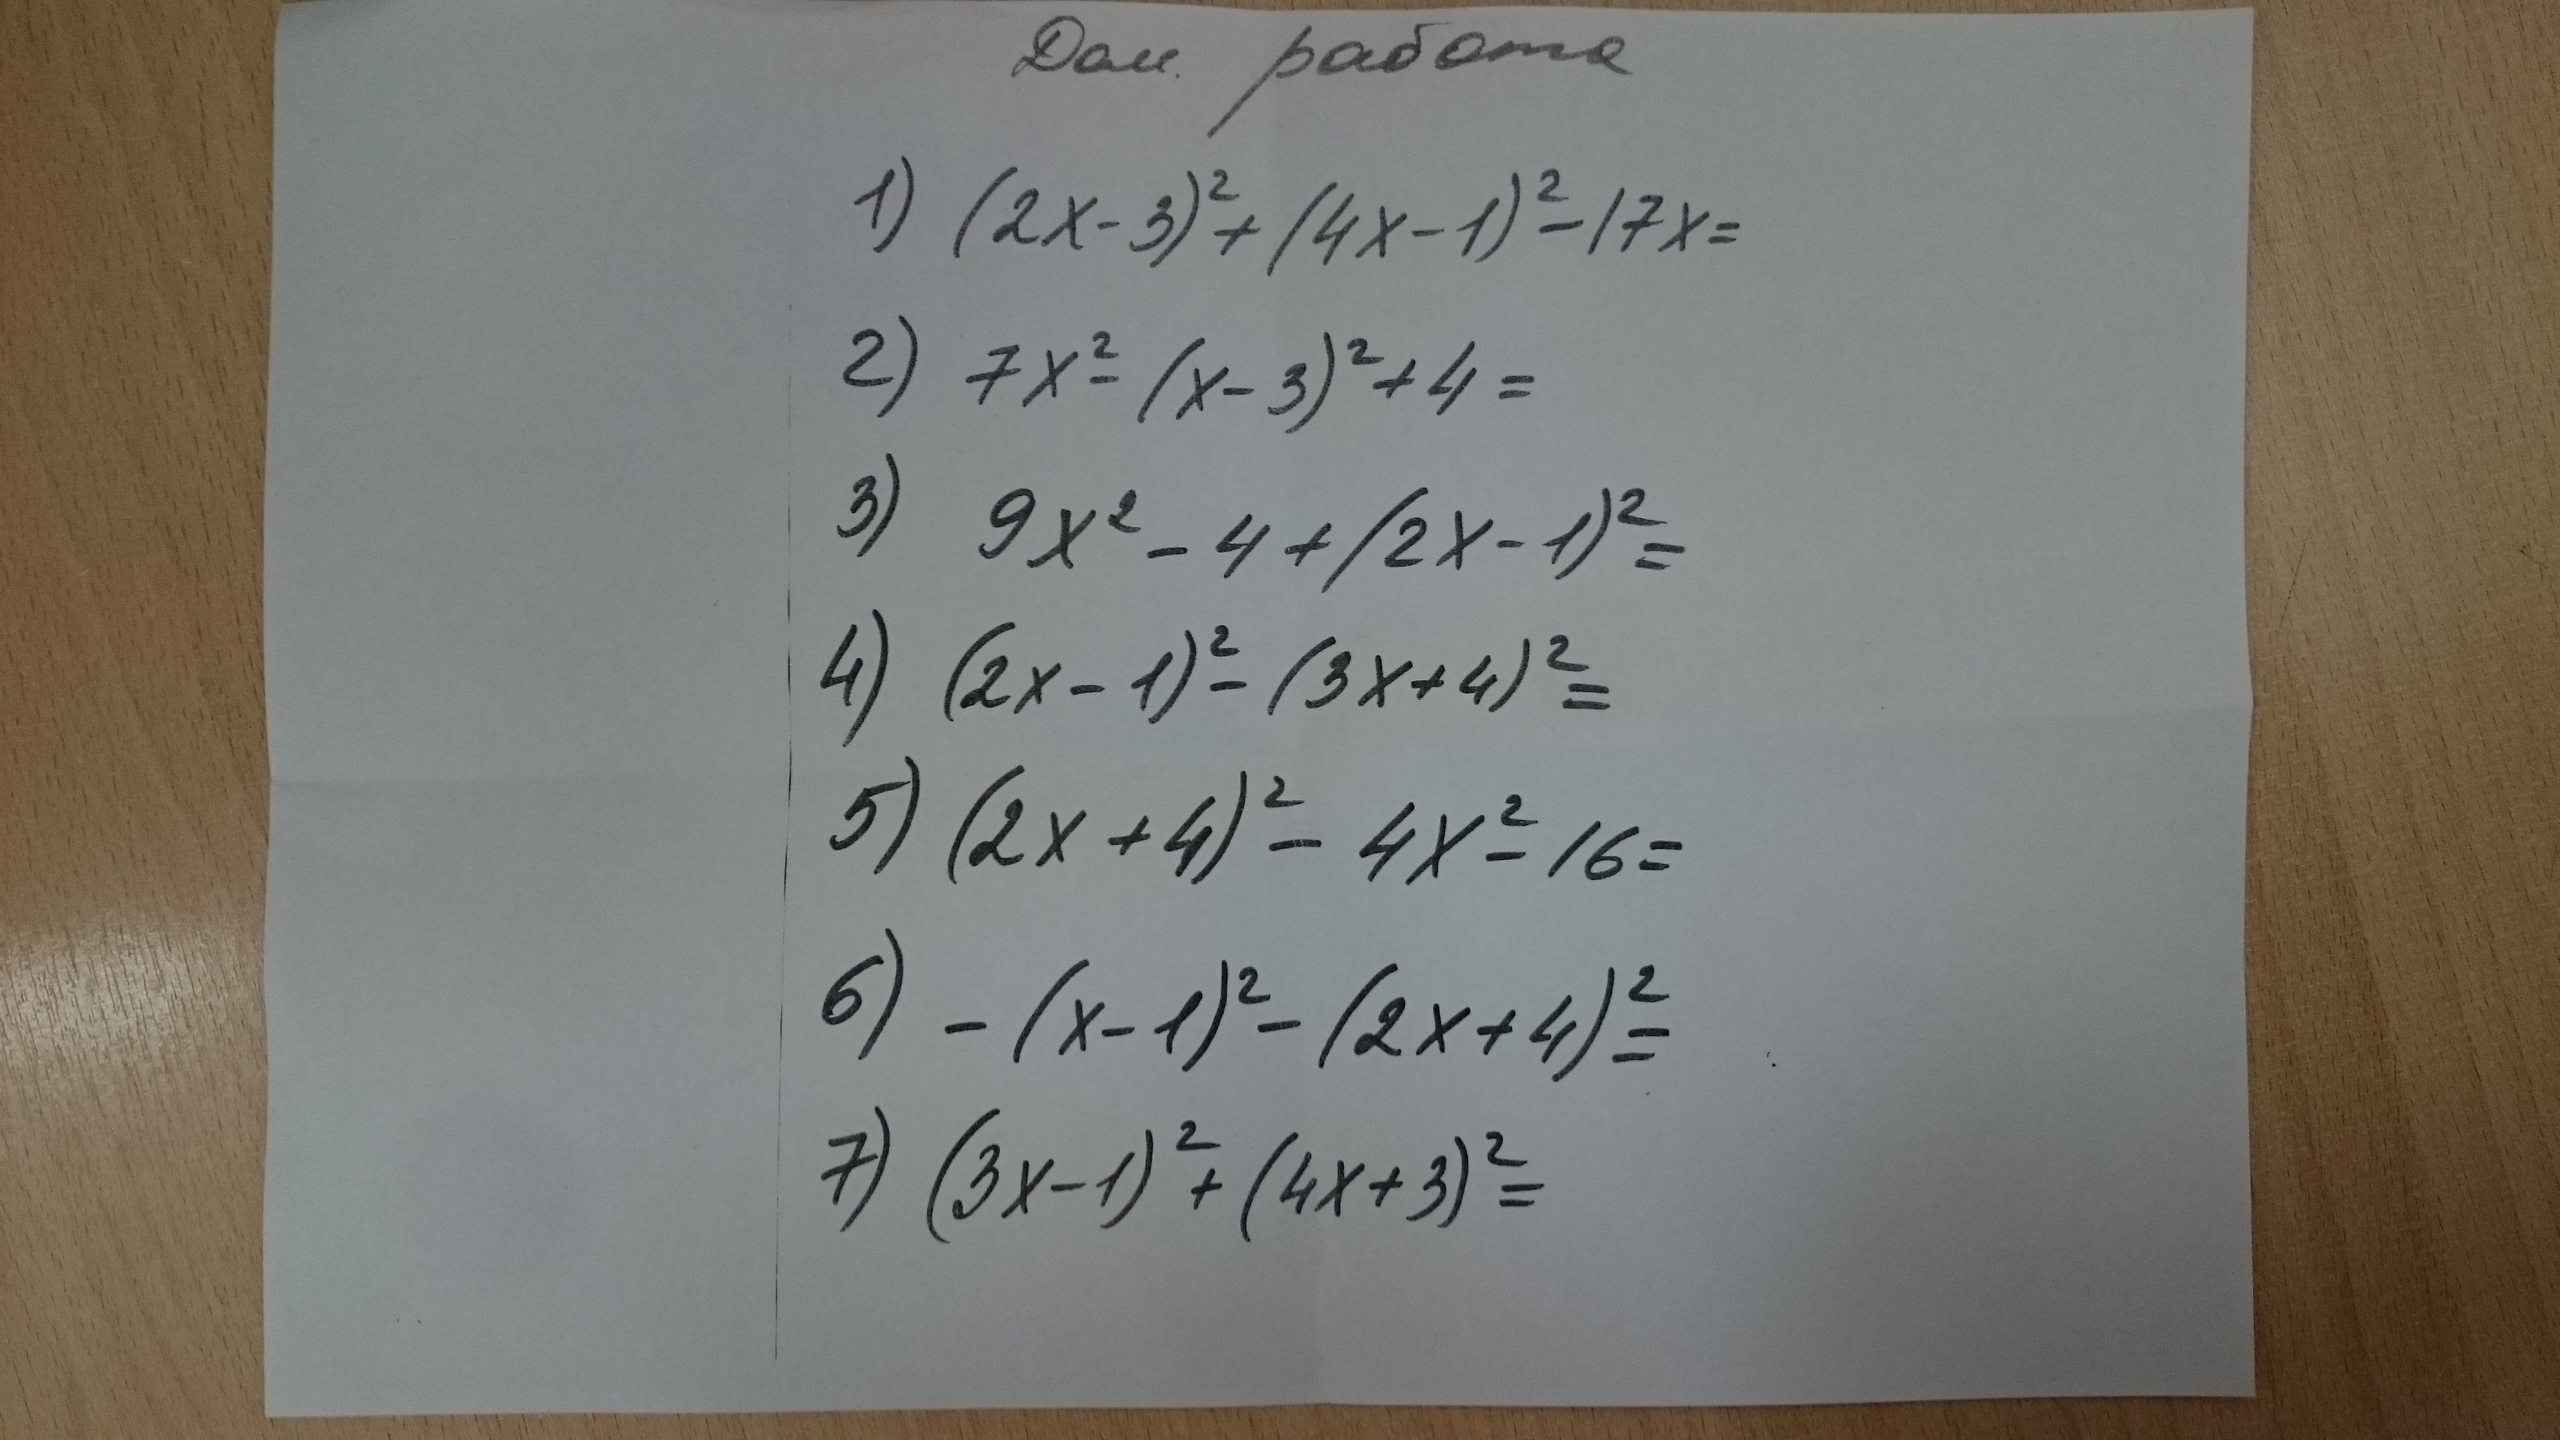 Дом. работа
1) (2x-3)²+(4x-1)²-17x=
2) 7x²-(x-3)²+4=
3) 9x²-4+(2x-1)²=
4) (2x-1)²-(3x+4)²=
5) (2x+4)²-4x²-16=
6) -(x-1)²-(2x+4)²=
7) (3x-1)²+(4x+3)²=